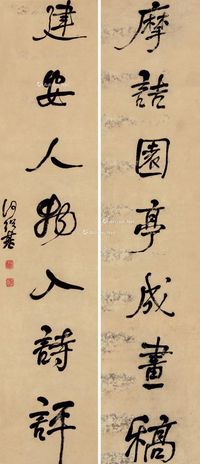 摩詰園亭成畫稿
建安人物入詩評
何紹基